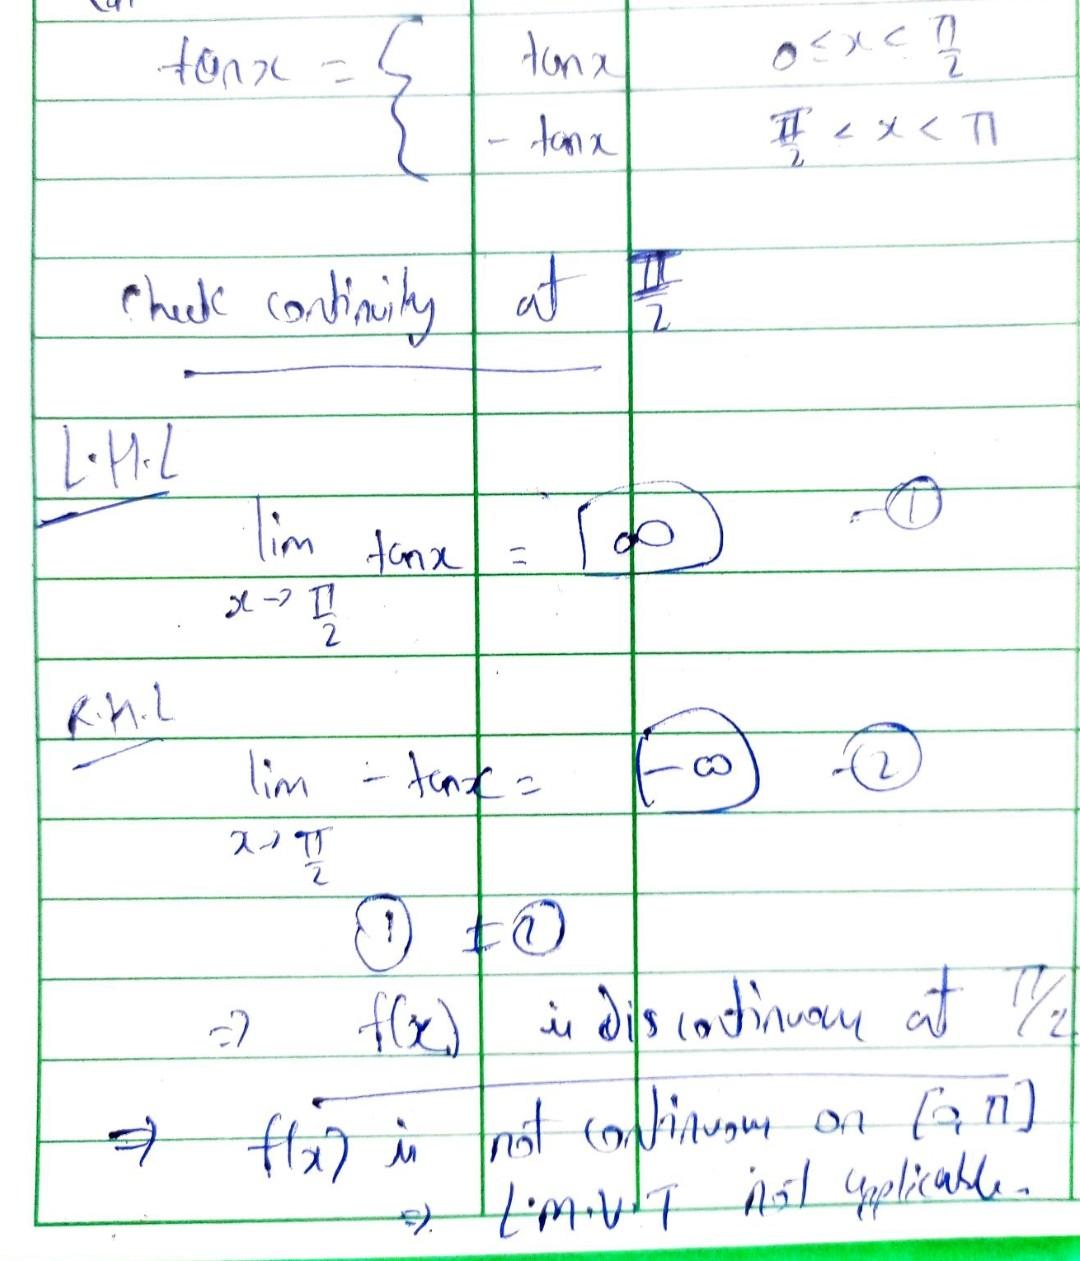 tanx = { tanx 0 ≤ x < π/2
- tanx π/2 < x < π
Check continuity at π/2
L.H.L
lim tanx = ∞ - ①
x → π/2
R.H.L
lim - tanx = - ∞ - ②
x → π/2
① ≠ ②
⇒ f(x) is discontinuous at π/2
⇒ f(x) is not continuous on [0, π]
⇒ L.M.V.T not applicable.